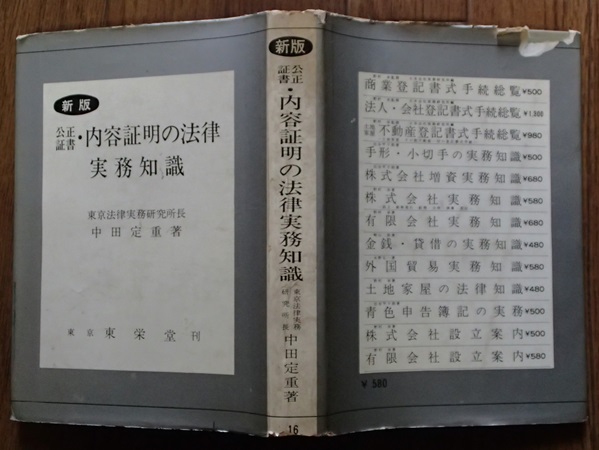 新版
公正証書・内容証明の法律
実務知識
東京法律実務研究所長
中田定重著
東京 東栄堂刊
新版
公正証書・内容証明の法律実務知識
東京法律実務研究所長
中田定重著
16
商業登記書式手続総覧 ¥500
法人・会社登記書式手続総覧 ¥1,300
不動産登記書式手続総覧 ¥980
手形・小切手の実務知識 ¥500
株式会社増資実務知識 ¥680
株式会社実務知識 ¥580
有限会社実務知識 ¥680
金銭・貸借の実務知識 ¥480
外国貿易実務知識 ¥580
土地家屋の法律知識 ¥480
青色申告簿記の実務 ¥500
株式会社設立案内 ¥500
有限会社設立案内 ¥580
¥ 580